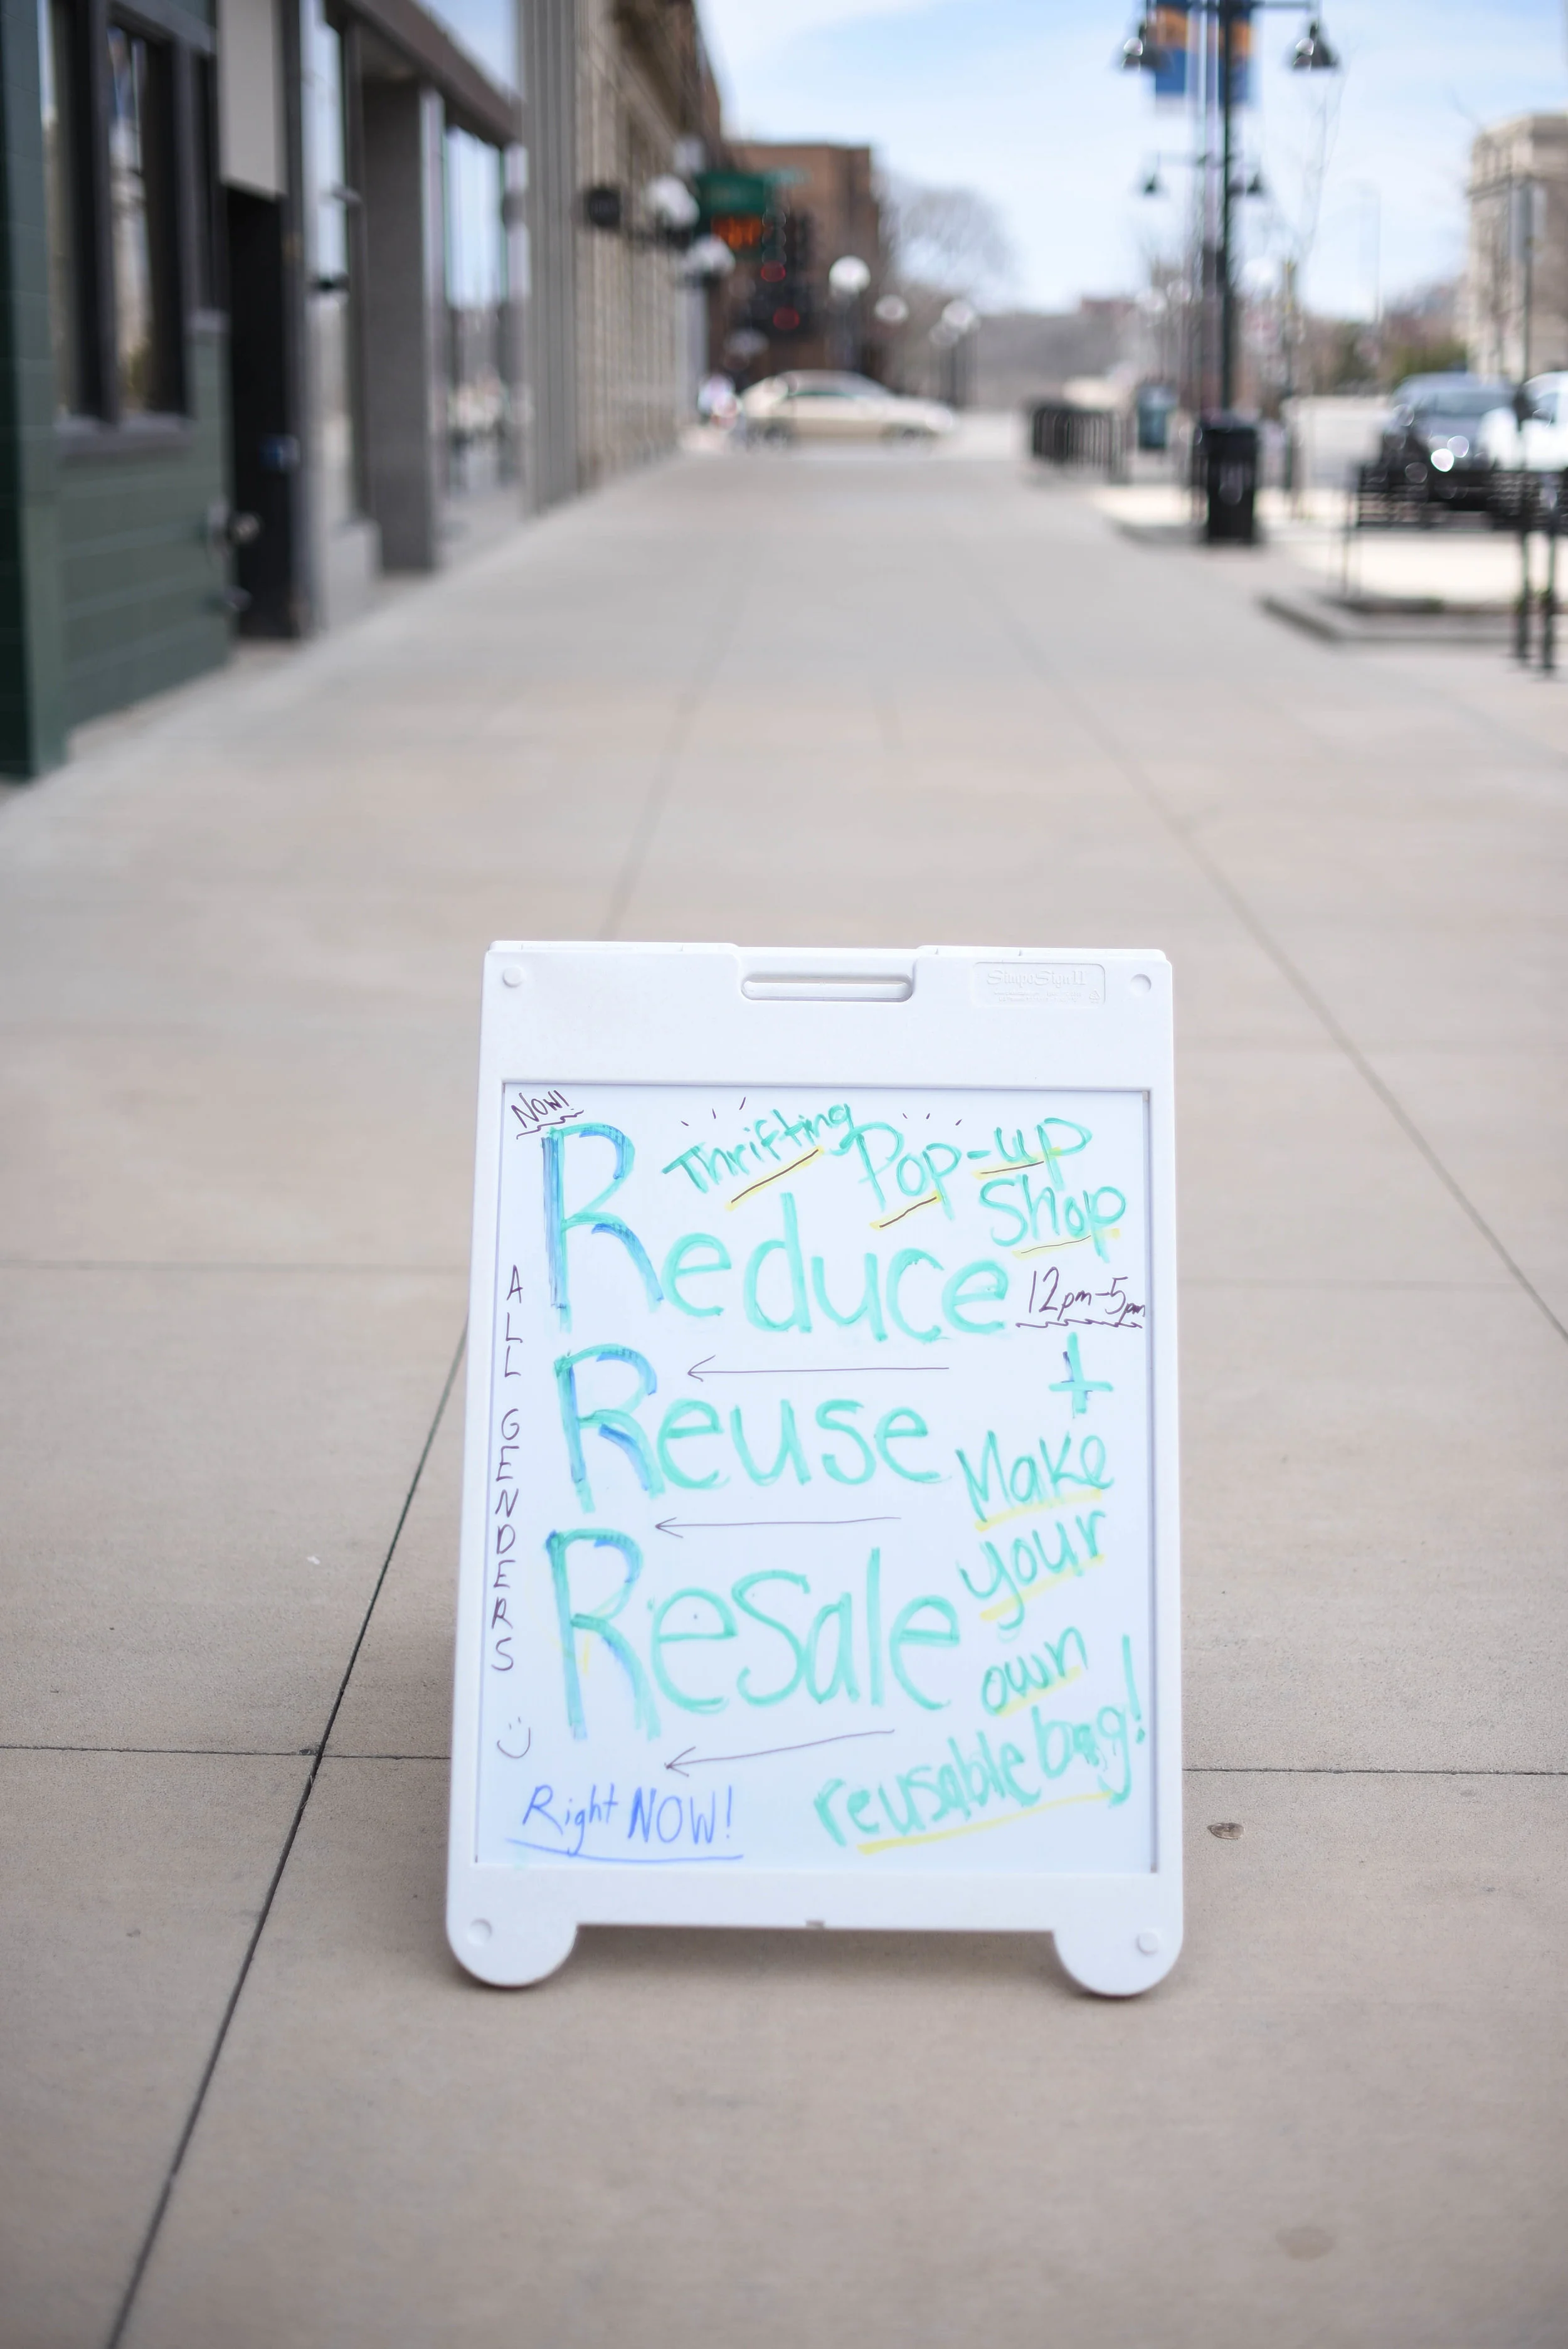 SimpoSign II
NOW!
Thrifting
Pop-up
Shop
Reduce
12pm-5pm
ALL GENDERS
Reuse
+
Make
your
own
reusable bag!
ReSale
Right NOW!